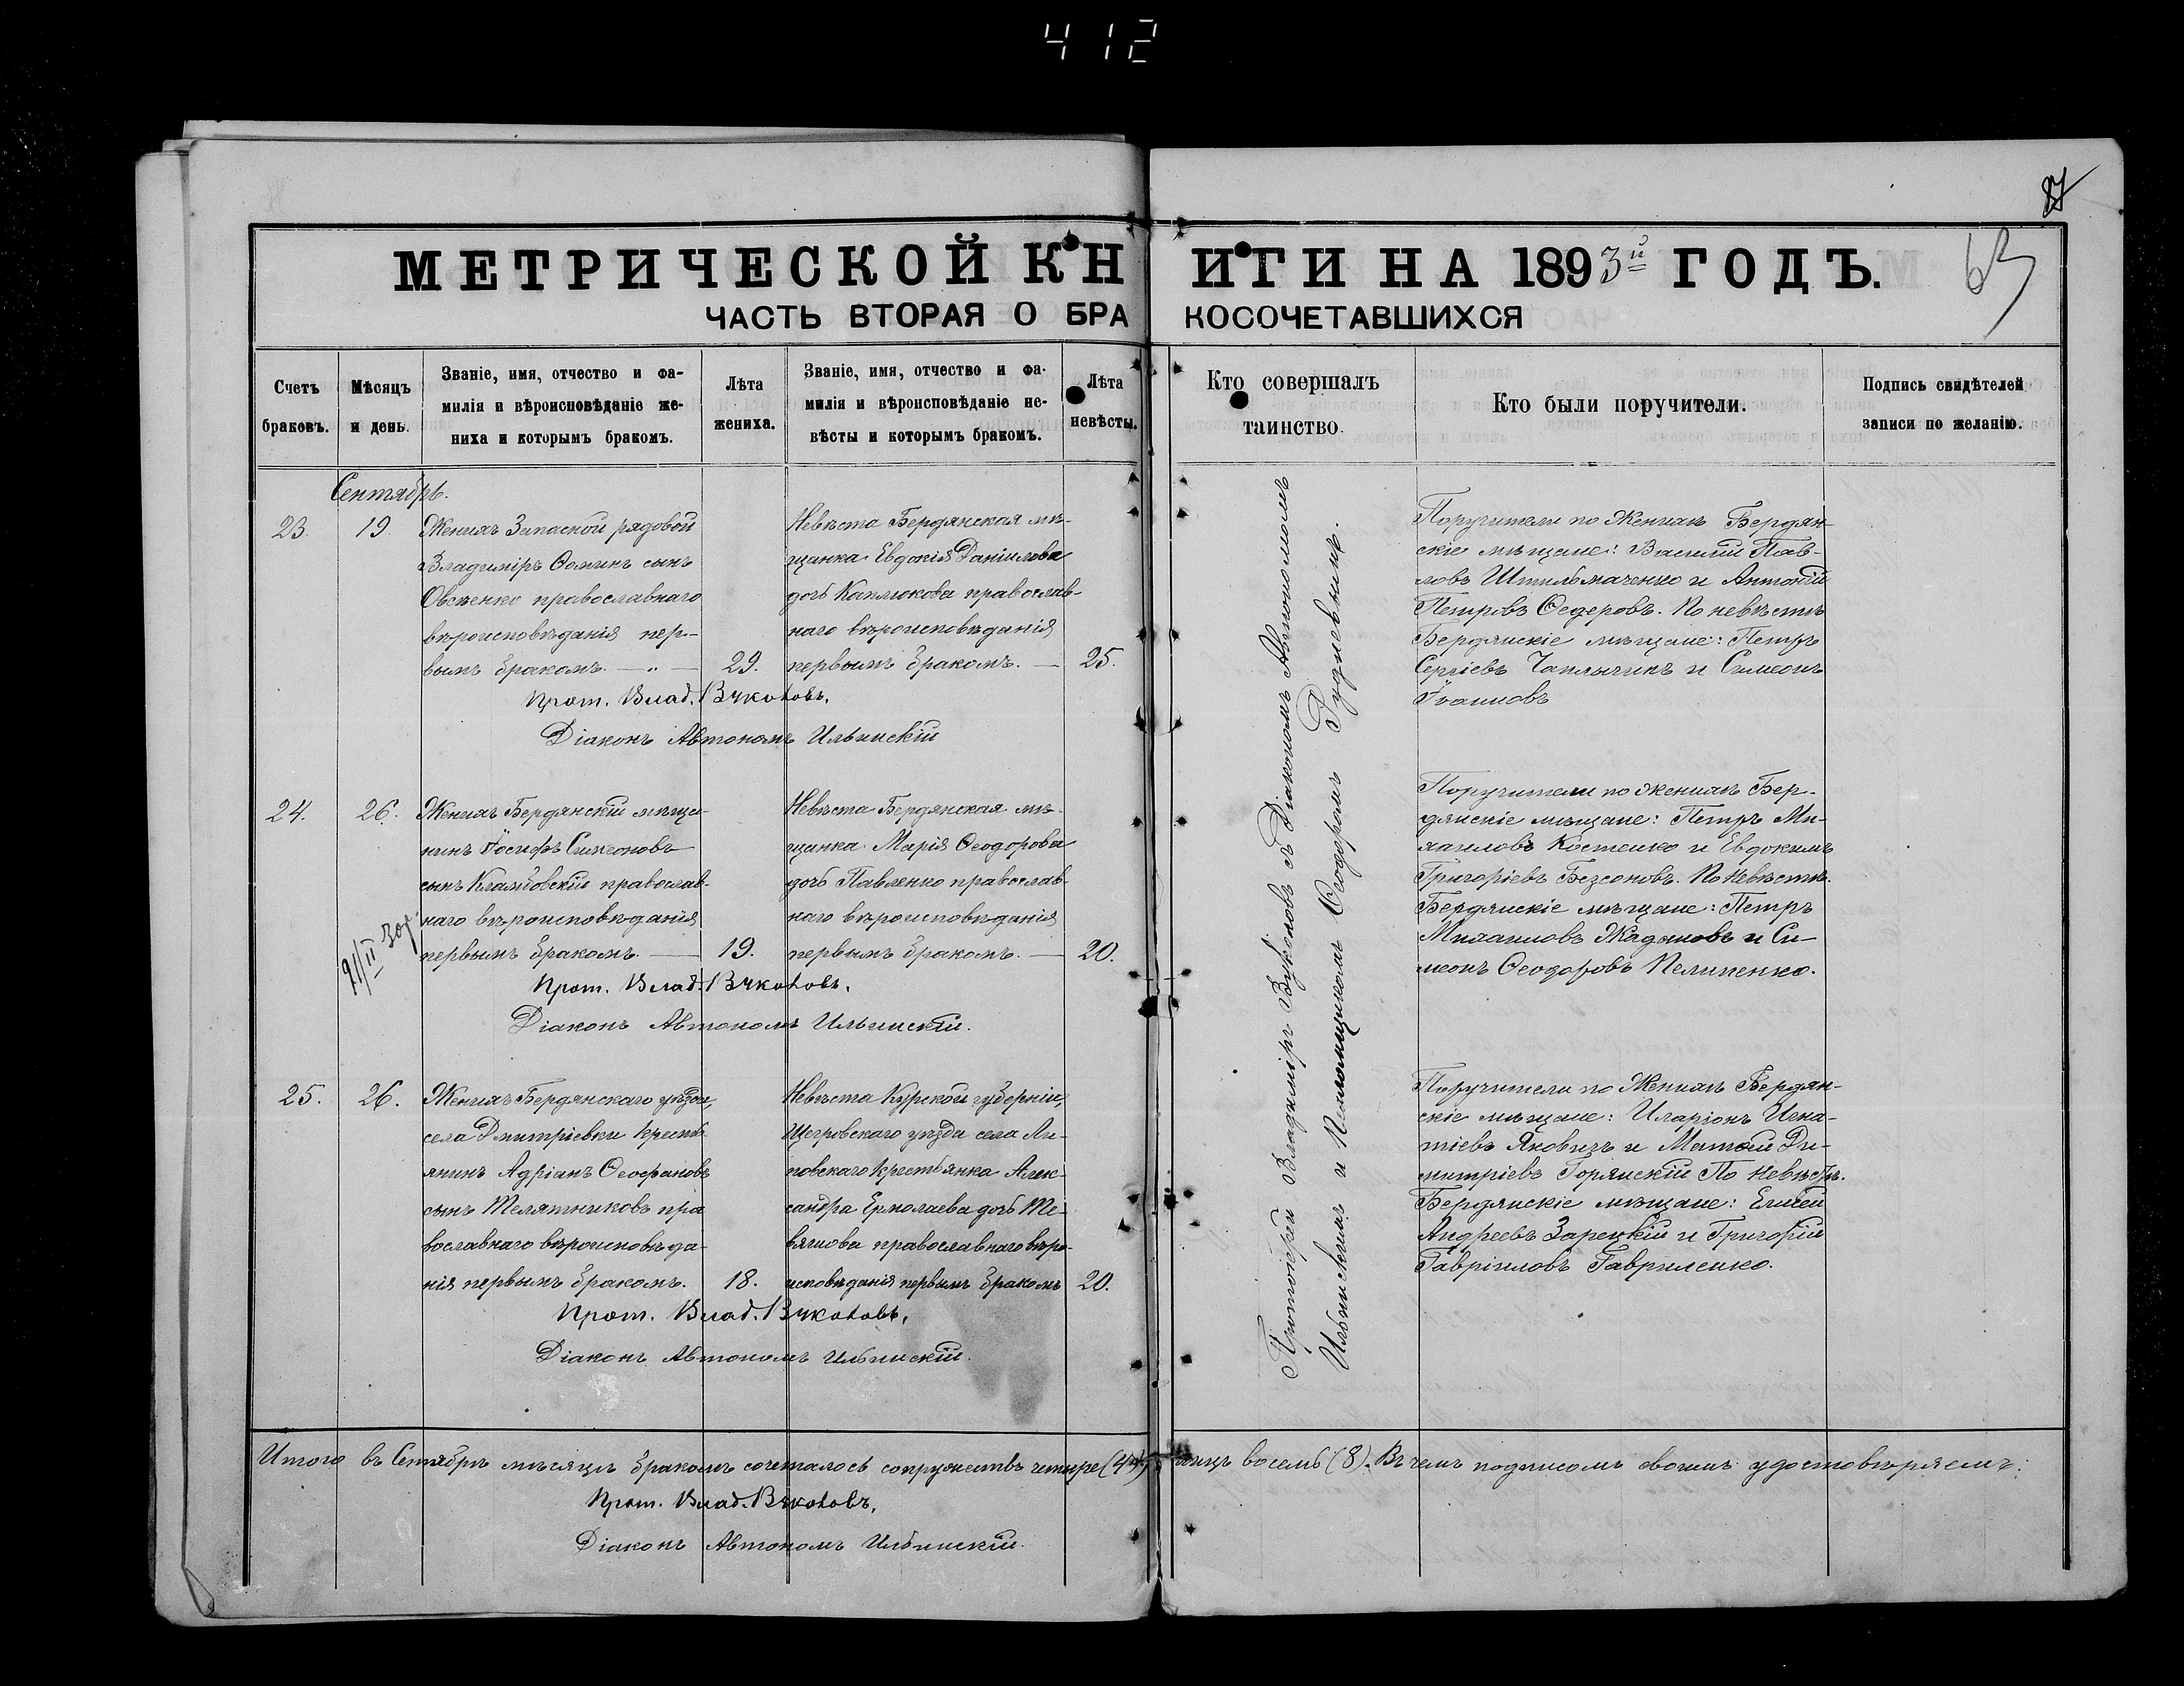 412
87
63
МЕТРИЧЕСКОЙ КНИГИ НА 1893й ГОДЪ.
ЧАСТЬ ВТОРАЯ О БРАКОСОЧЕТАВШИХСЯ
Счетъ браковъ.
Мѣсяцъ и день.
Званіе, имя, отчество и фа-
милія и вѣроисповѣданіе же-
ниха и которымъ бракомъ.
Лѣта жениха.
Званіе, имя, отчество и фа-
милія и вѣроисповѣданіе не-
вѣсты и которымъ бракомъ.
Лѣта невѣсты.
Кто совершалъ
таинство.
Кто были поручители.
Подпись свидѣтелей
записи по желанію.
Сентябрь.
23.
19
Женихъ Запасной рядовой
Владиміръ Ѳоминъ сынъ
Овсѣенко православнаго
вѣроисповѣданія пер-
вымъ бракомъ. — „ —
29.
Невѣста Бердянская мѣ-
щанка Евдокія Даніилова
дочь Каплюкова православ-
наго вѣроисповѣданія
первымъ бракомъ. —
25.
Прот. Влад. Вуколовъ.
Діаконъ Автономъ Ильинскій
Поручители по Женихѣ Бердян-
скіе мѣщане: Василій Пав-
ловъ Штильмаченко и Антоній
Петровъ Ѳедоровъ. По невѣстѣ
Бердянскіе мѣщане: Петръ
Сергіевъ Чаплыгинъ и Симеонъ
Іоанновъ
24.
26.
Женихъ Бердянскій мѣща-
нинъ Іосифъ Симеоновъ
сынъ Кламбовскій православ-
наго вѣроисповѣданія
первымъ бракомъ. —
19.
Невѣста Бердянская мѣ-
щанка Марія Ѳеодорова
дочь Павленко православ-
наго вѣроисповѣданія
первымъ бракомъ. —
20.
Прот. Влад. Вуколовъ.
Діаконъ Автономъ Ильинскій.
Поручители по Женихѣ Бер-
дянскіе мѣщане: Петръ Ми-
хаиловъ Костенко и Евдокимъ
Григоріевъ Безсоновъ. По Невѣстѣ.
Бердянскіе мѣщане: Петръ
Михаиловъ Жадановъ и Си-
меонъ Ѳеодоровъ Пелипенко.
25.
26.
Женихъ Бердянскаго уѣзда,
села Дмитріевки крестья-
янинъ Адріанъ Ѳеофановъ
сынъ Телятниковъ пра
вославнаго вѣроисповѣда-
нія первымъ бракомъ.
18.
Невѣста Курской губерніи,
Щегровскаго уѣзда села Ли-
повскаго крестьянка Алек-
сандра Ермолаева дочь Те-
вяшова православнаго вѣро-
исповѣданія первымъ бракомъ
20.
Прот. Влад. Вуколовъ.
Діаконъ Автономъ Ильинскій.
Поручители по Женихѣ Бердян-
скіе мѣщане: Иларіонъ Игна-
тіевъ Яковизъ и Матѳей Ди-
митріевъ Горянскій По Невѣстѣ.
Бердянскіе мѣщане: Елисей
Андреевъ Зарецкій и Григорій
Гавріиловъ Гавриленко.
Протоіерей Владиміръ Вуколовъ съ Діакономъ Автономомъ
Ильинскимъ и Псаломщикомъ Ѳеодоромъ Рудневымъ.
Итого въ Сентябрѣ мѣсяцѣ бракомъ сочеталось супружествъ четыре (4) лицъ восемь (8). Въ чемъ подписомъ своимъ удостовѣряемъ:
Прот. Влад. Вуколовъ.
Діаконъ Автономъ Ильинскій.